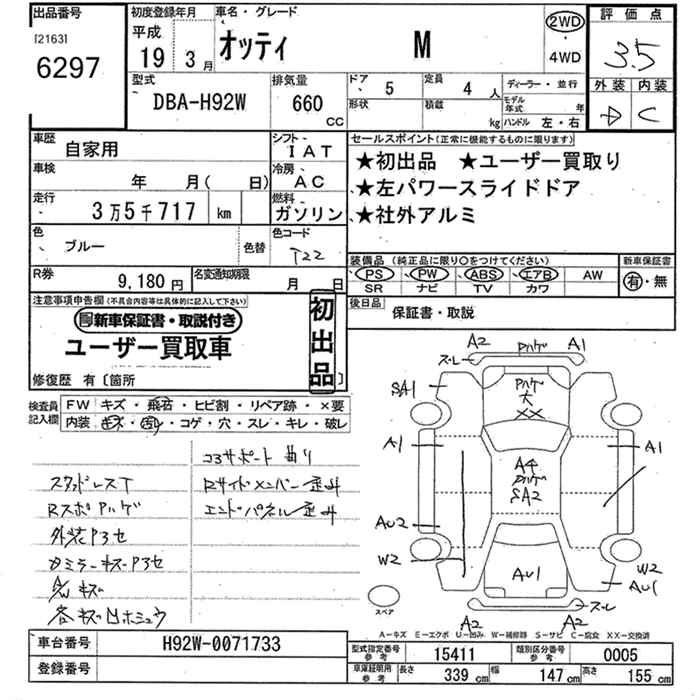 出品番号
[2163]
6297
初度登録年月
平成
19 3月
車名・グレード
オッティ M
2WD
・
4WD
評価点
3.5
外装 内装
D C
型式
DBA-H92W
排気量
660
CC
ドア
5
定員
4 人
形状
積載
kg
ディーラー・並行
モデル年式 年
ハンドル 左・右
車歴
自家用
シフト
IAT
車検
年 月( 日)
冷房
AC
走行
3万5千717 km
燃料
ガソリン
色
ブルー
色替
色コード
T22
R券
9,180円
名変通知期限
月 日
セールスポイント(正常に機能するものに限ります)
★初出品 ★ユーザー買取り
★左パワースライドドア
★社外アルミ
装備品(純正品に限り○をつけてください)
PS PW ABS エアB AW
SR ナビ TV カワ
新車保証書
有・無
後日品
保証書・取説
注意事項申告欄(不具合内容等は具体的に記入して下さい)
新車保証書・取説付き
ユーザー買取車
初出品
修復歴 有〔箇所 〕
検査員記入欄
FW キズ・飛石・ヒビ割・リペア跡・×要
内装 キズ・汚れ・コゲ・穴・スレ・キレ・破レ
コアサポート曲り
スタッドレスT
Rサイドメンバー歪み
RスポPハゲ
エンドパネル歪み
外装P3セ
カミラーキズP3セ
A/Wキズ
各キズ凹ホシュウ
A2 Pハゲ A1
スレ
SA1
Pハゲ
大
XX
A1
A1
Aキ
Pハゲ
SA2
AU2
W2
W2
AU1
AU1
スレ
A2 A2
スペア
A-キズ E-エクボ U-凹み W-補修跡 S-サビ C-腐食 XX-交換済
車台番号
H92W-0071733
登録番号
型式指定番号
参考
15411
類別区分番号
参考
0005
車庫証明用
参考
長さ 339 cm 幅 147 cm 高さ 155 cm